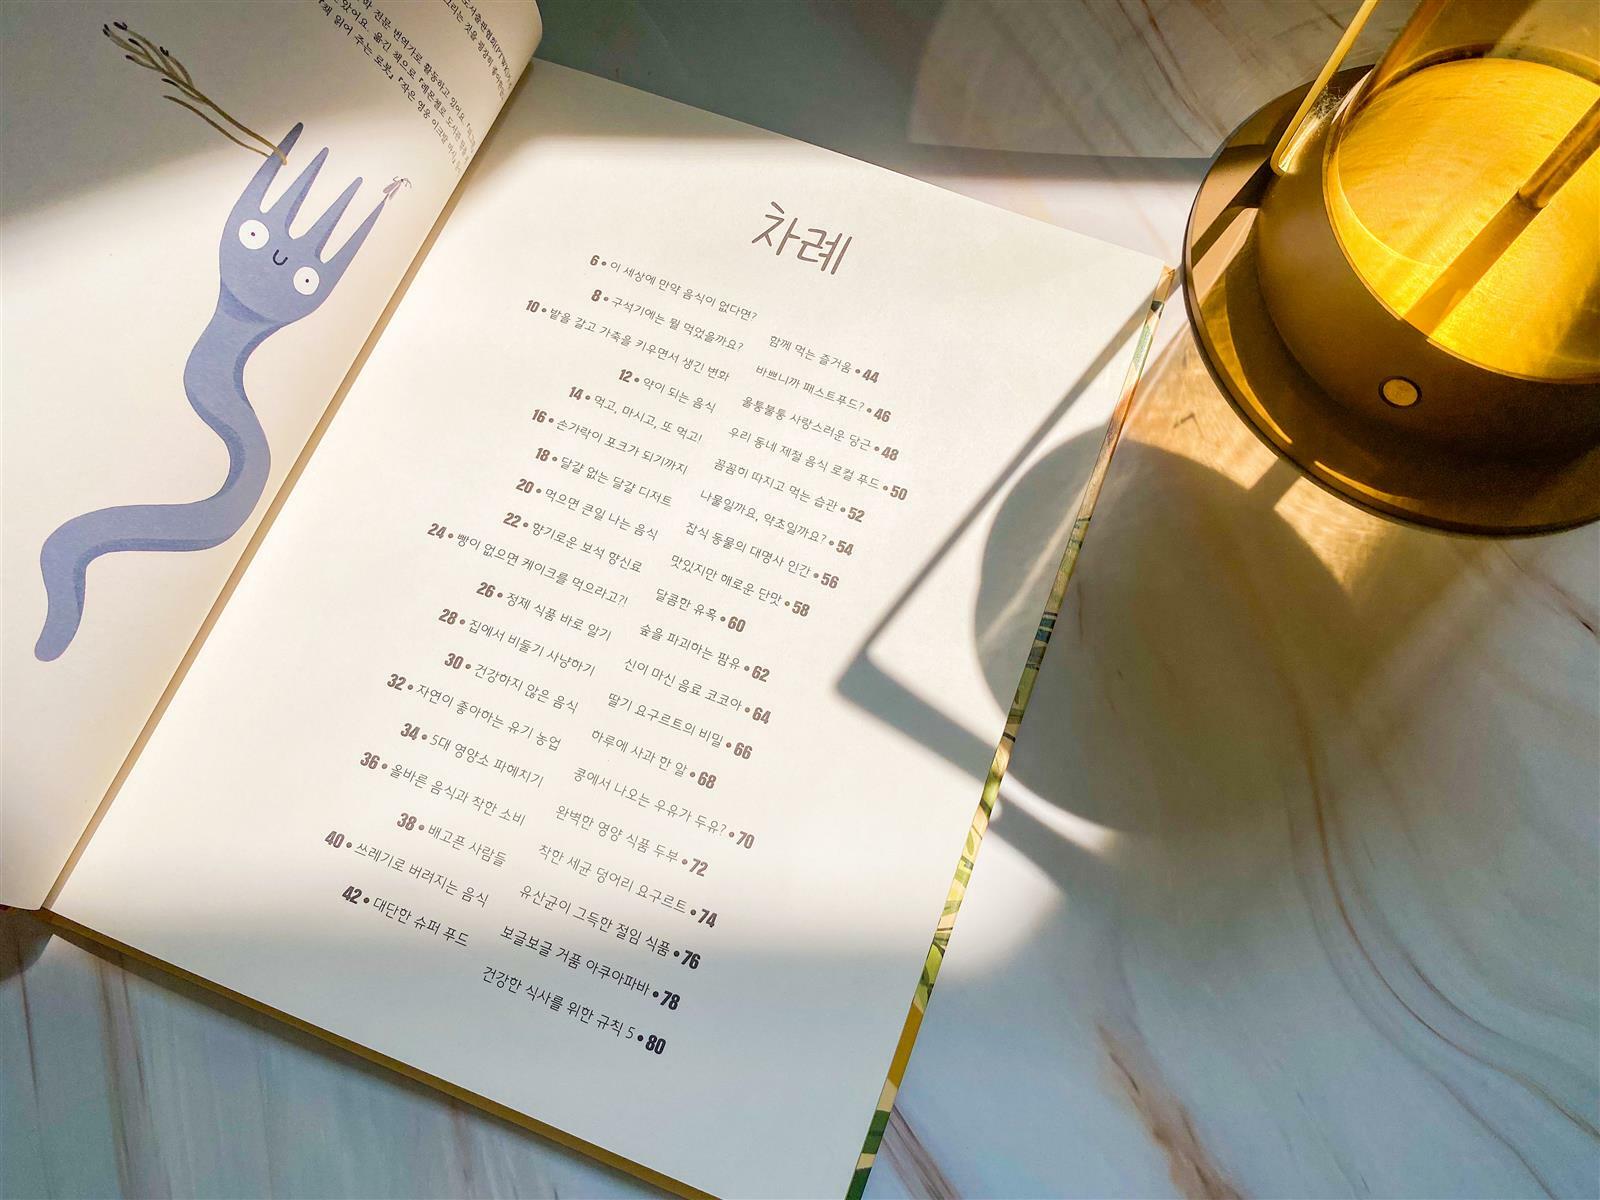 차례
6 • 이 세상에 만약 음식이 없다면?
8 • 구석기에는 뭘 먹었을까요?
10 • 밭을 갈고 가축을 키우면서 생긴 변화
12 • 약이 되는 음식
14 • 먹고, 마시고, 또 먹고!
16 • 손가락이 포크가 되기까지
18 • 달걀 없는 달걀 디저트
20 • 먹으면 큰일 나는 음식
22 • 향기로운 보석 향신료
24 • 빵이 없으면 케이크를 먹으라고?!
26 • 정제 식품 바로 알기
28 • 집에서 비둘기 사냥하기
30 • 건강하지 않은 음식
32 • 자연이 좋아하는 유기 농업
34 • 5대 영양소 파헤치기
36 • 올바른 음식과 착한 소비
38 • 배고픈 사람들
40 • 쓰레기로 버려지는 음식
42 • 대단한 슈퍼 푸드
함께 먹는 즐거움 • 44
바쁘니까 패스트푸드? • 46
울퉁불퉁 사랑스러운 당근 • 48
우리 동네 제철 음식 로컬 푸드 • 50
꼼꼼히 따지고 먹는 습관 • 52
나물일까요, 약초일까요? • 54
잡식 동물의 대명사 인간 • 56
맛있지만 해로운 단맛 • 58
달콤한 유혹 • 60
숲을 파괴하는 팜유 • 62
신이 마신 음료 코코아 • 64
딸기 요구르트의 비밀 • 66
하루에 사과 한 알 • 68
콩에서 나오는 우유가 두유? • 70
완벽한 영양 식품 두부 • 72
착한 세균 덩어리 요구르트 • 74
유산균이 그득한 절임 식품 • 76
보글보글 거품 아쿠아파바 • 78
건강한 식사를 위한 규칙 5 • 80